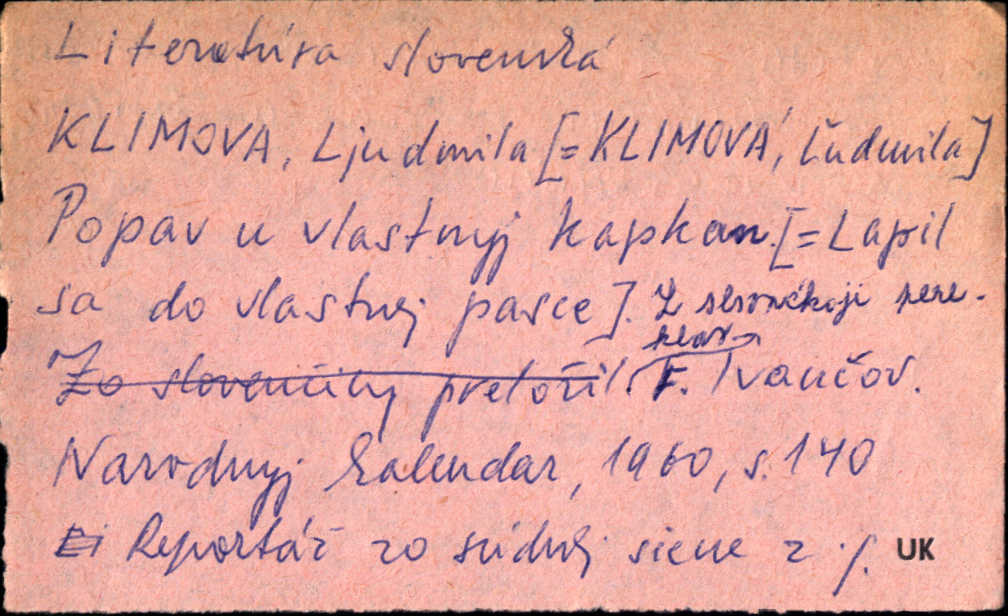 Literatúra slovenská
KLIMOVA, Ljudmila [=KLIMOVÁ, Ľudmila]
Popav u vlastnyj kapkan. [=Lapil
sa do vlastnej pasce]. Z slovackoji pere-
klav
Zo slovenčiny preložil F. Ivančov.
Narodnyj kalendar, 1960, s. 140
Reportáž zo súdnej siene z
UK